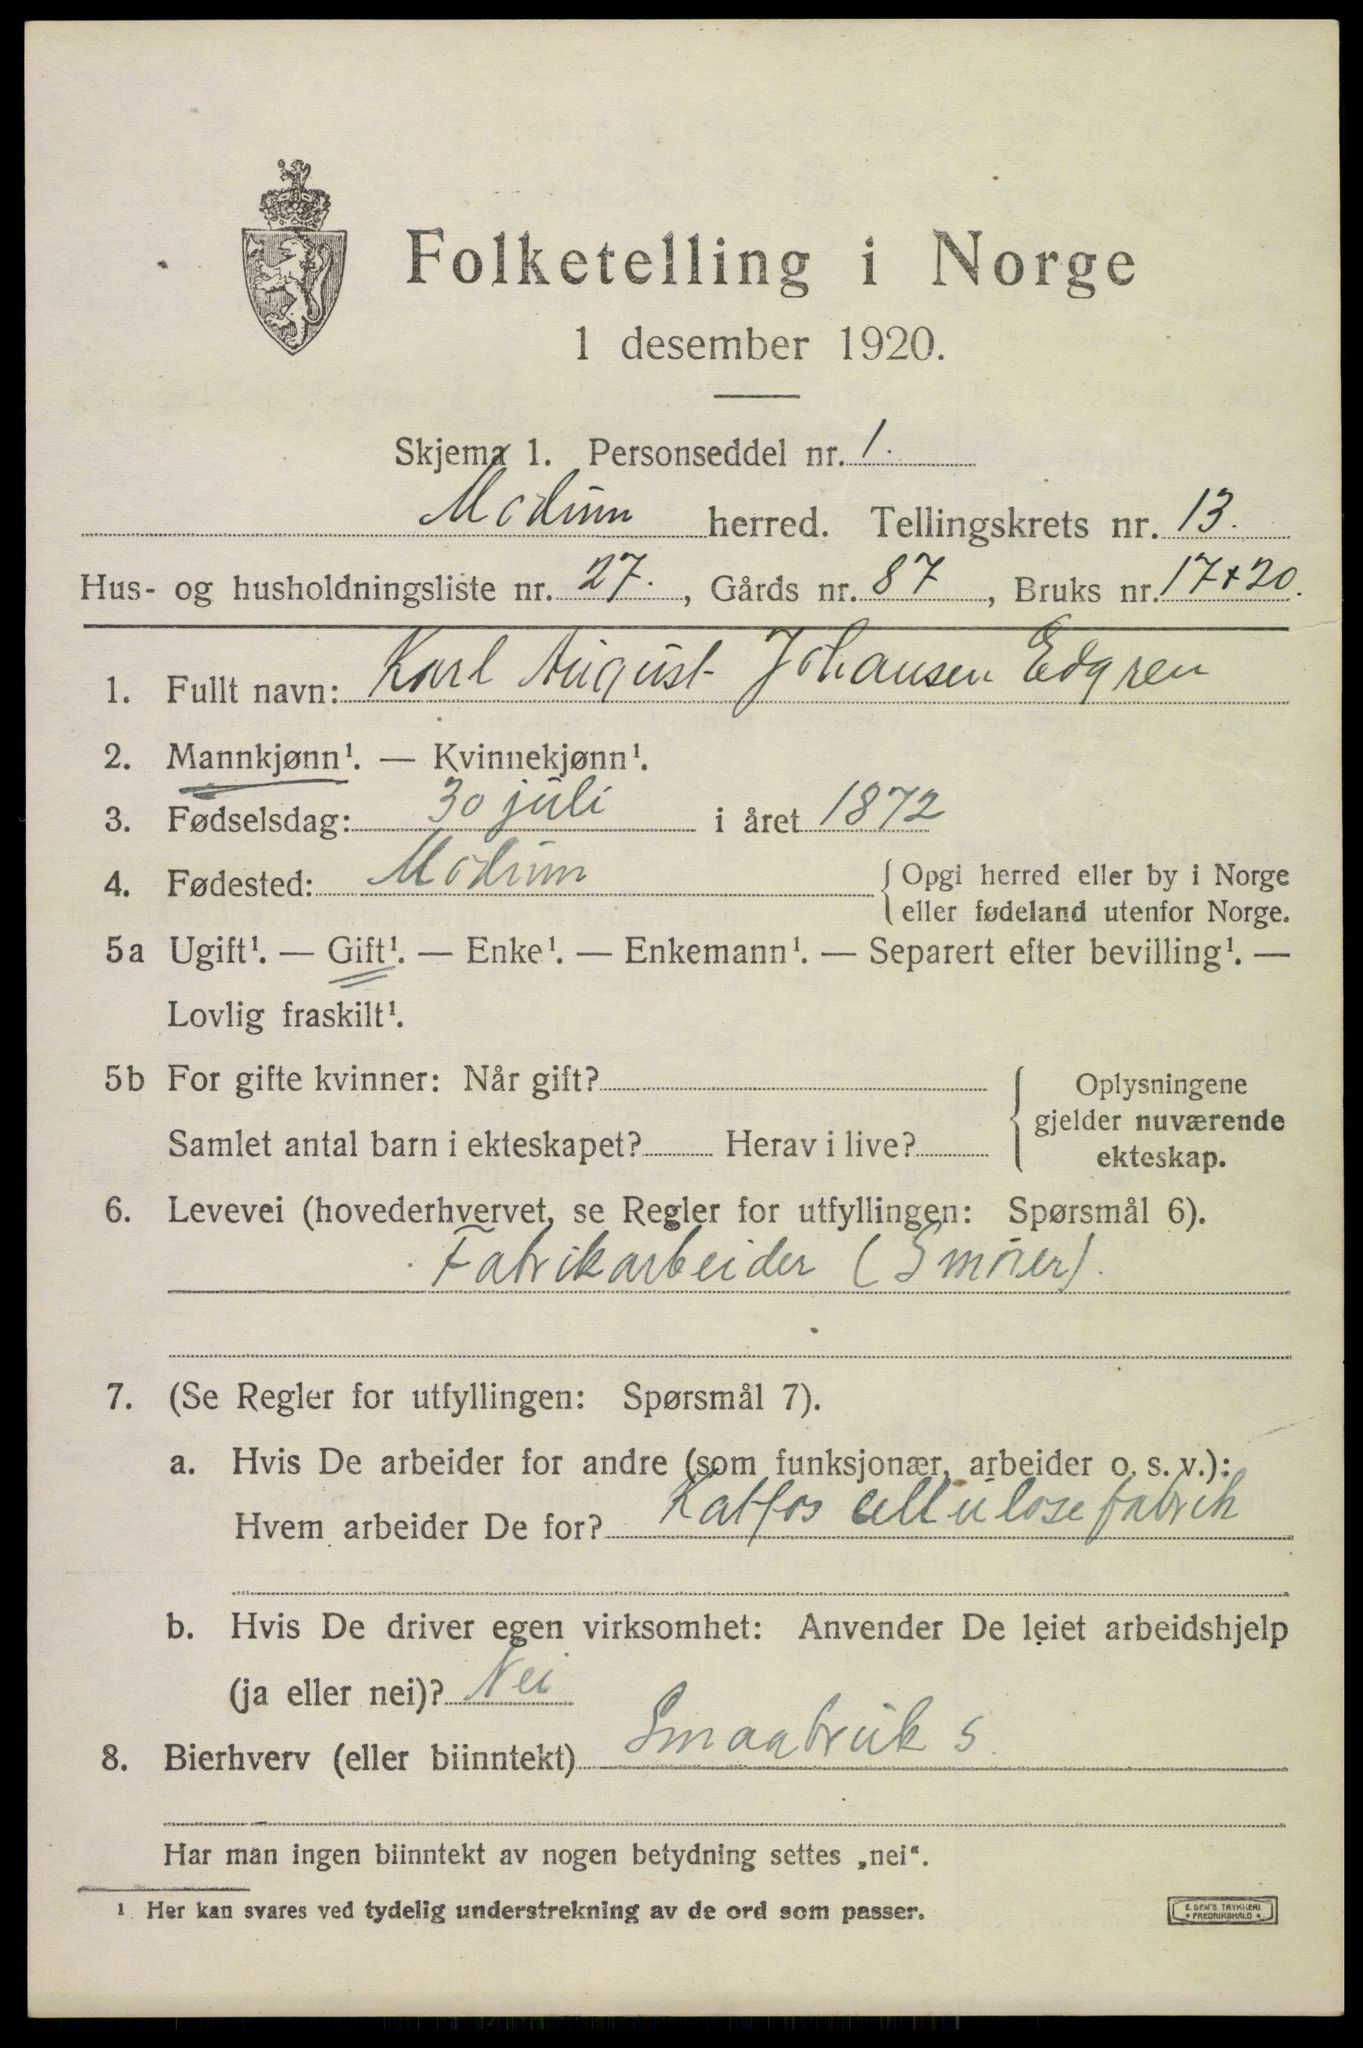 Folketelling i Norge
1 desember 1920.
Skjema 1. Personseddel nr. 1.
Modum herred. Tellingskrets nr. 13.
Hus- og husholdningsliste nr. 27., Gårds nr. 87, Bruks nr. 17+20.
1. Fullt navn: Karl August Johansen Edgren
2. Mannkjønn¹. — Kvinnekjønn¹.
3. Fødselsdag: 30 juli i året 1872
4. Fødested: Modum { Opgi herred eller by i Norge
eller fødeland utenfor Norge.
5a Ugift¹. — Gift¹. — Enke¹. — Enkemann¹. — Separert efter bevilling¹. —
Lovlig fraskilt¹.
5b For gifte kvinner: Når gift? { Oplysningene
gjelder nuværende
Samlet antal barn i ekteskapet? Herav i live?
ekteskap.
6. Levevei (hovederhvervet, se Regler for utfyllingen: Spørsmål 6).
Fabrikarbeider (Smører).
7. (Se Regler for utfyllingen: Spørsmål 7).
a. Hvis De arbeider for andre (som funksjonær, arbeider o. s. v.):
Hvem arbeider De for? Katfos cellulosefabrik
b. Hvis De driver egen virksomhet: Anvender De leiet arbeidshjelp
(ja eller nei)? Nei
8. Bierhverv (eller biinntekt) Smaabruk s
Har man ingen biinntekt av nogen betydning settes „nei“.
¹ Her kan svares ved tydelig understrekning av de ord som passer.
E. SEM'S TRYKKERI
• FREDRIKSHALD •